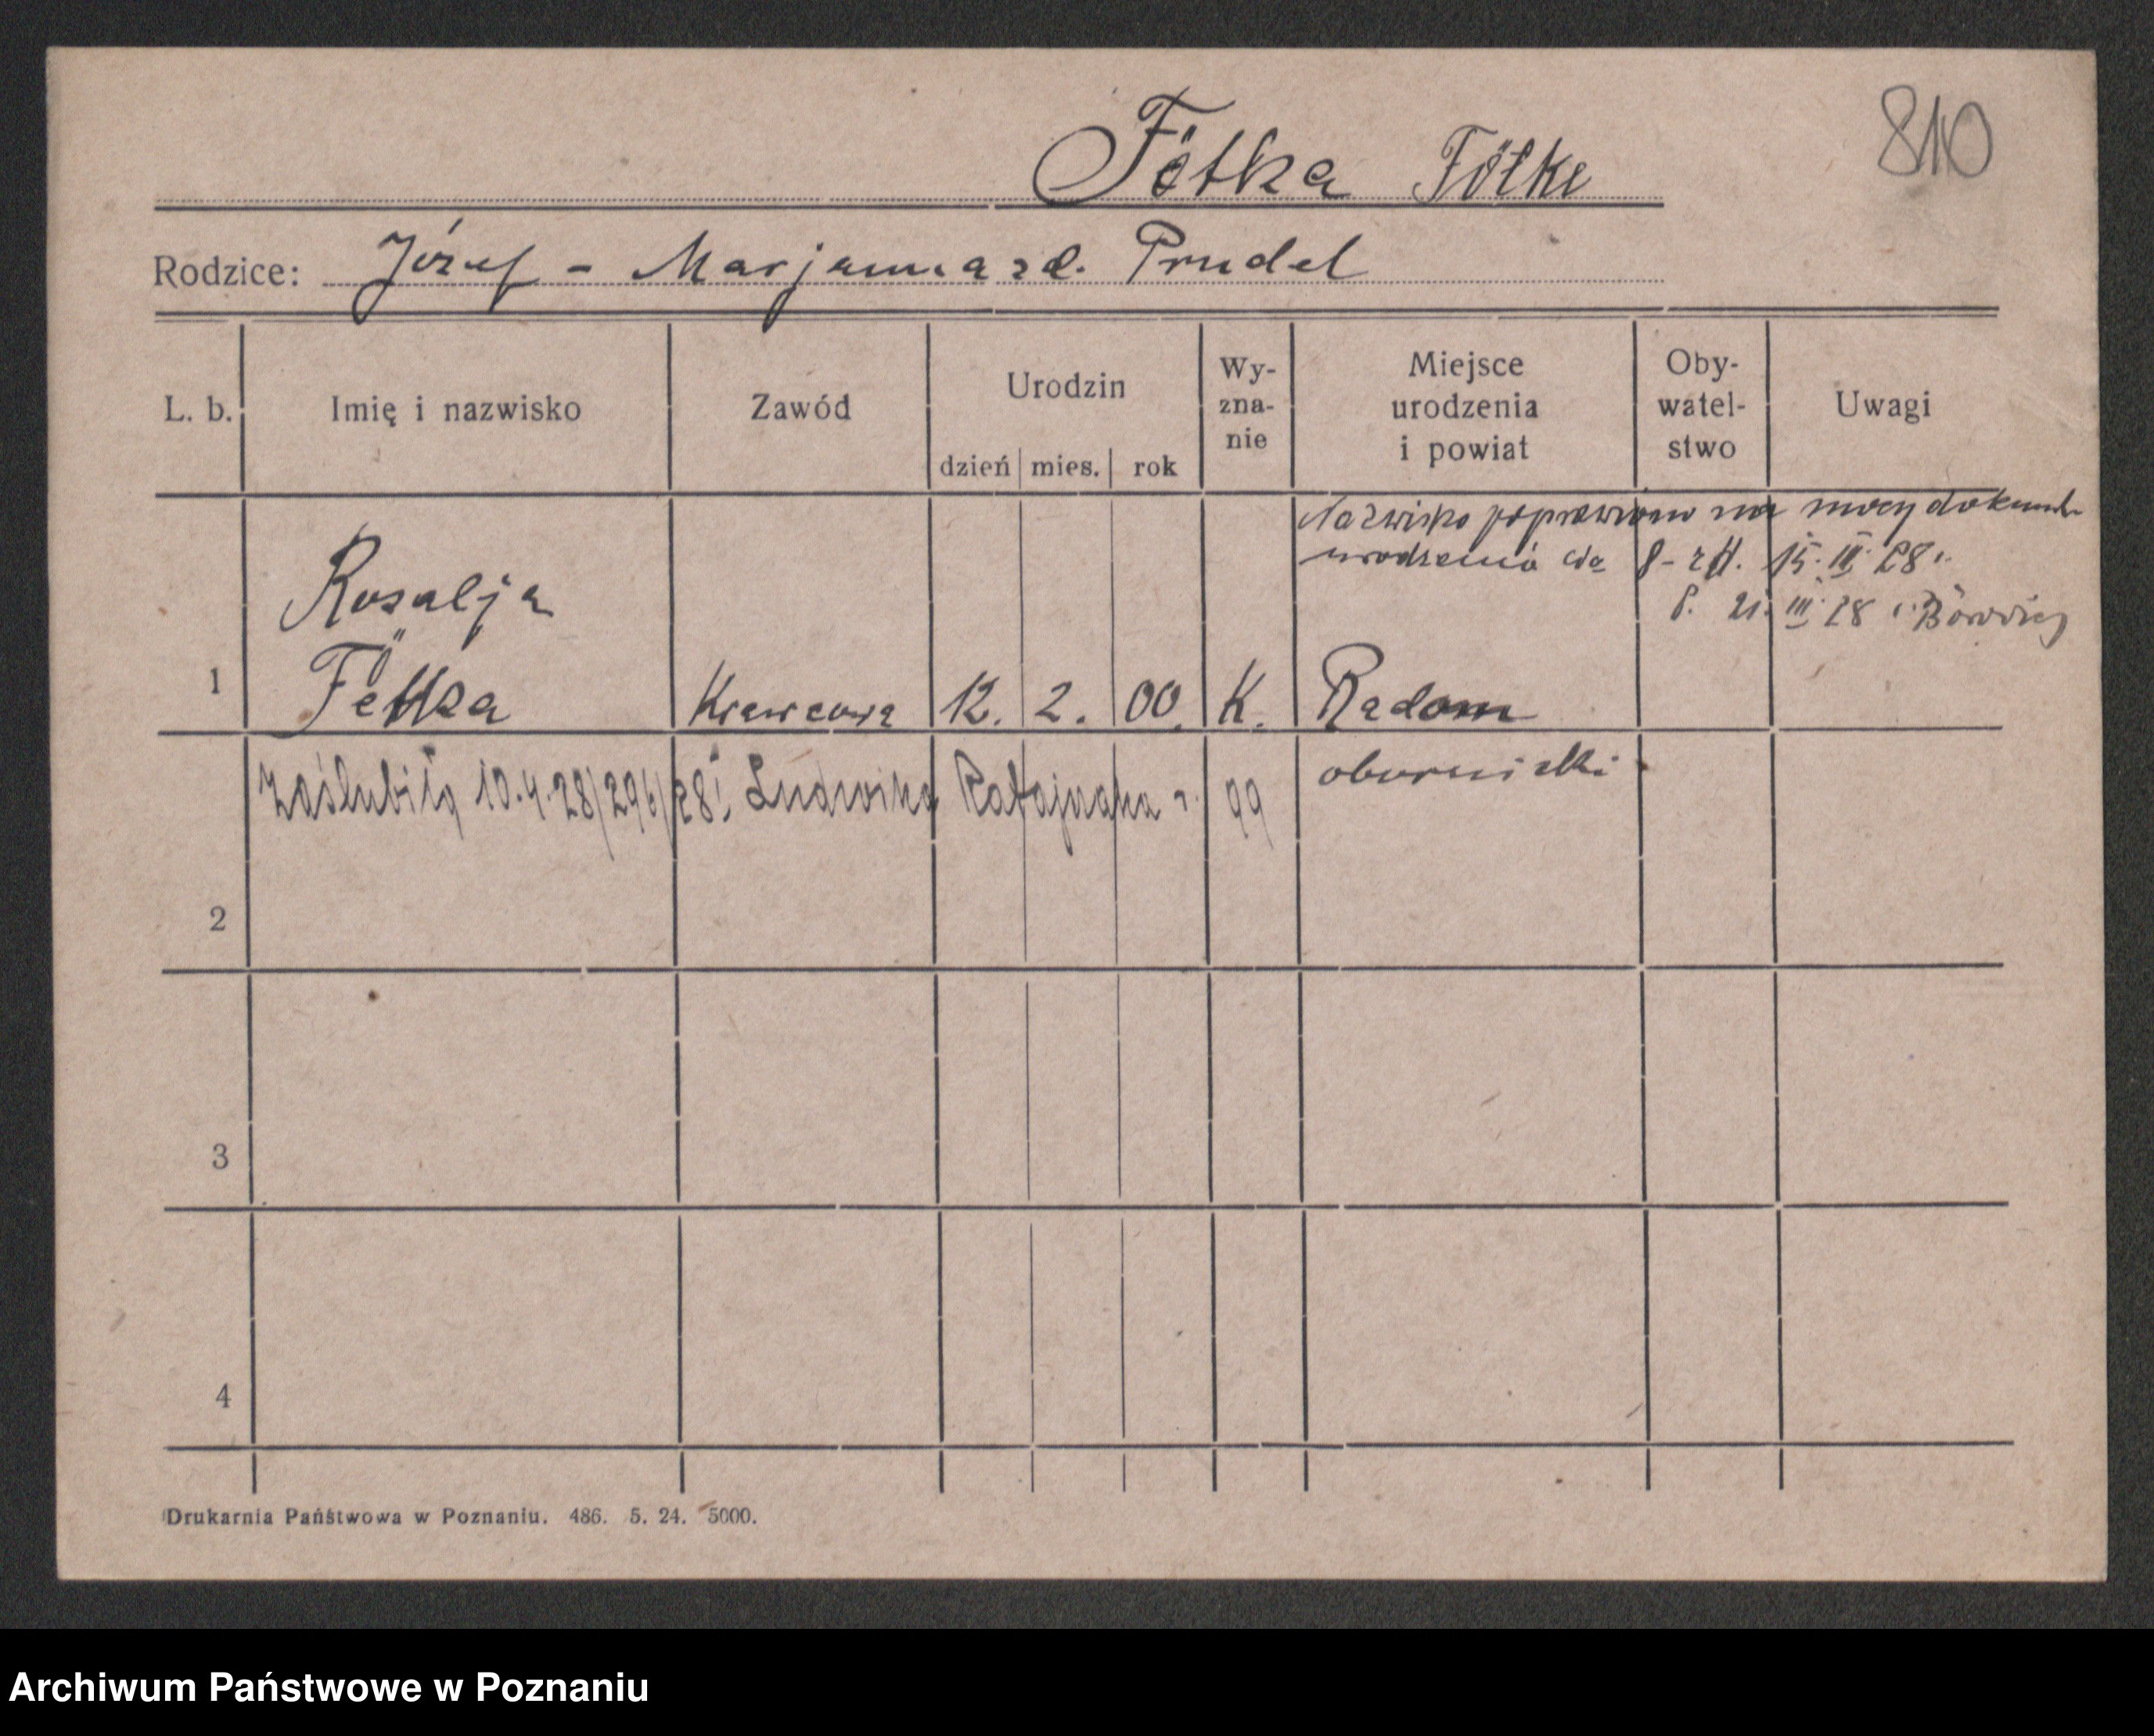 810
Fötka Fölke
Rodzice: Józef - Marjanna zd. Prudel
L. b. Imię i nazwisko Zawód Urodzin dzień mies. rok Wy-zna-nie Miejsce urodzenia i powiat Oby-watel-stwo Uwagi
Nazwisko poprawiono na mocy dokum.
urodzenia 15. III. 28 r.
P. 21. III. 28
Rozalja
1 Krawcowa 12. 2. 00. K. Radom
obornicki
Zaślubiła 10.4.28/296/28 Ludwika Ratajczaka r. 99
2
3
4
Drukarnia Państwowa w Poznaniu. 486. 5. 24. 5000.
Archiwum Państwowe w Poznaniu